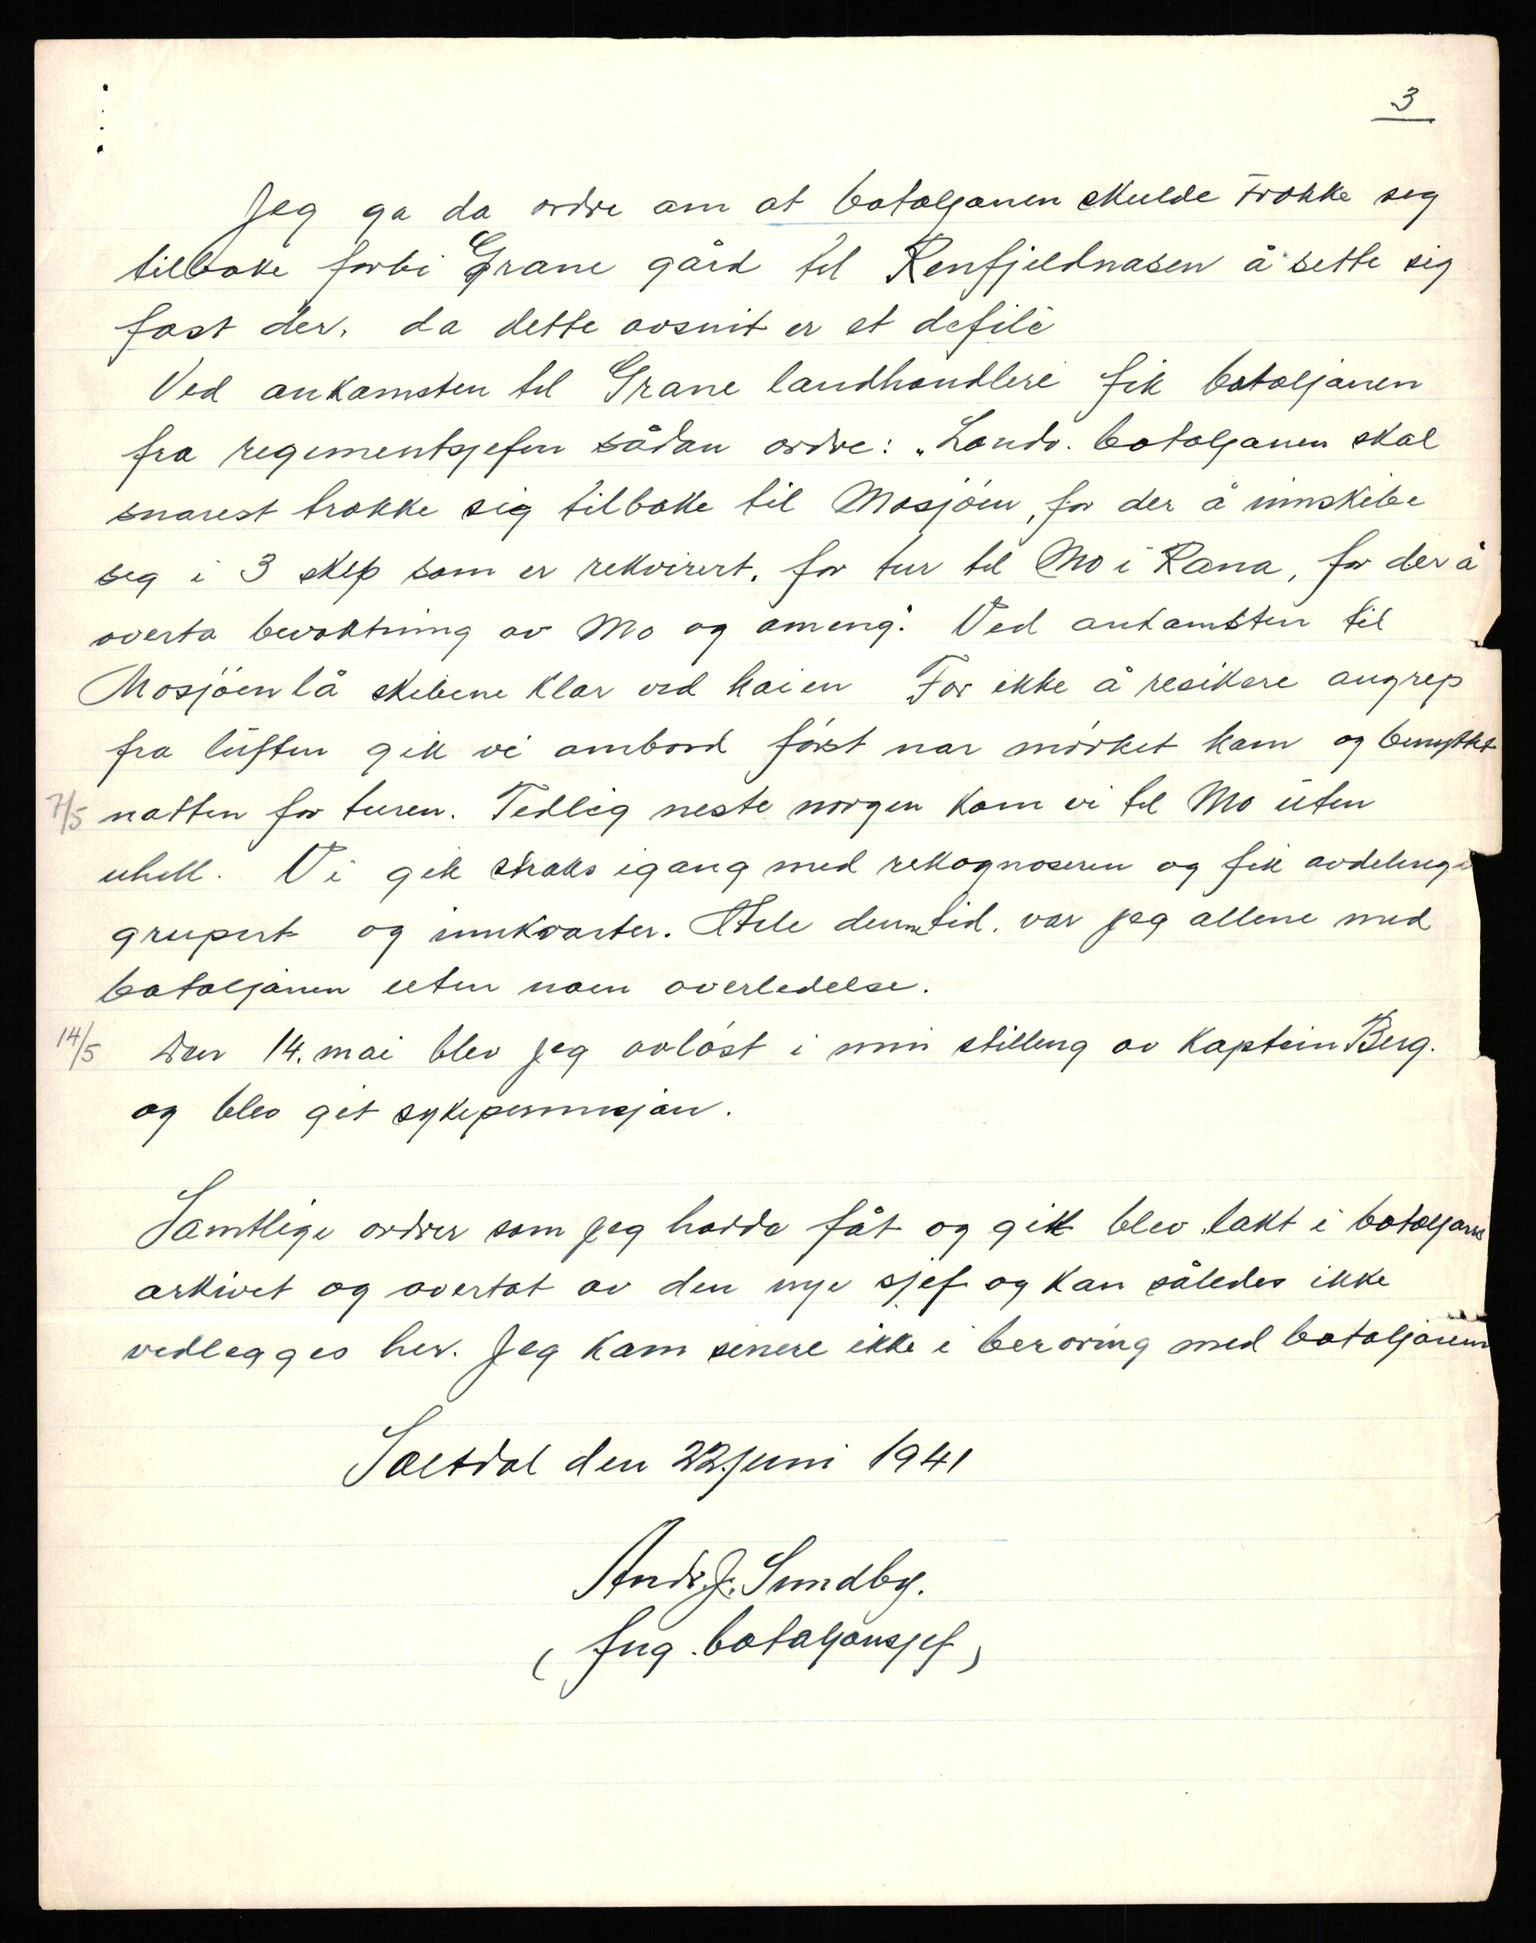 3
Jeg ga da ordre om at bataljonen skulde trække seg
tilbake forbi Grane gård til Renfjeldnasen å sette sig
fast der, da dette avsnit er et defilé
Ved ankomsten til Grane landhandleri fik bataljonen
fra regimentsjefen sådan ordre: „Landv. bataljonen skal
snarest trække sig tilbake til Mosjöen, for der å innskibe
seg i 3 skip som er rekvirert, for tur til Mo i Rana, for der å
overta bevoktning av Mo og omeng". Ved ankomsten til
Mosjöen lå skibene klar ved kaien For ikke å resikere angrep
fra lüften gik vi ombord först nar mörket kom og benyttet
7/5 natten for turen. Tidlig neste morgen kom vi til Mo uten
uhell. Vi gik straks igang med rekognoseren og fik avdelinge
grupert og innkvarter. Hele denne tid. var jeg allene med
bataljonen uten noen overledelse.
14/5 Den 14. mai blev jeg avlöst i min stilling av Kaptein Berg.
og blev git sykepermisjon.
Samtlige ordrer som jeg hadde fåt og gik blev lakt i bataljons
arkivet og overtat av den nye sjef og kan således ikke
vedlegges her. Jeg kom senere ikke i beröring med bataljonen
Saltdal den 22. juni 1941
Andr. J. Sundby.
( fug. bataljonsjef )